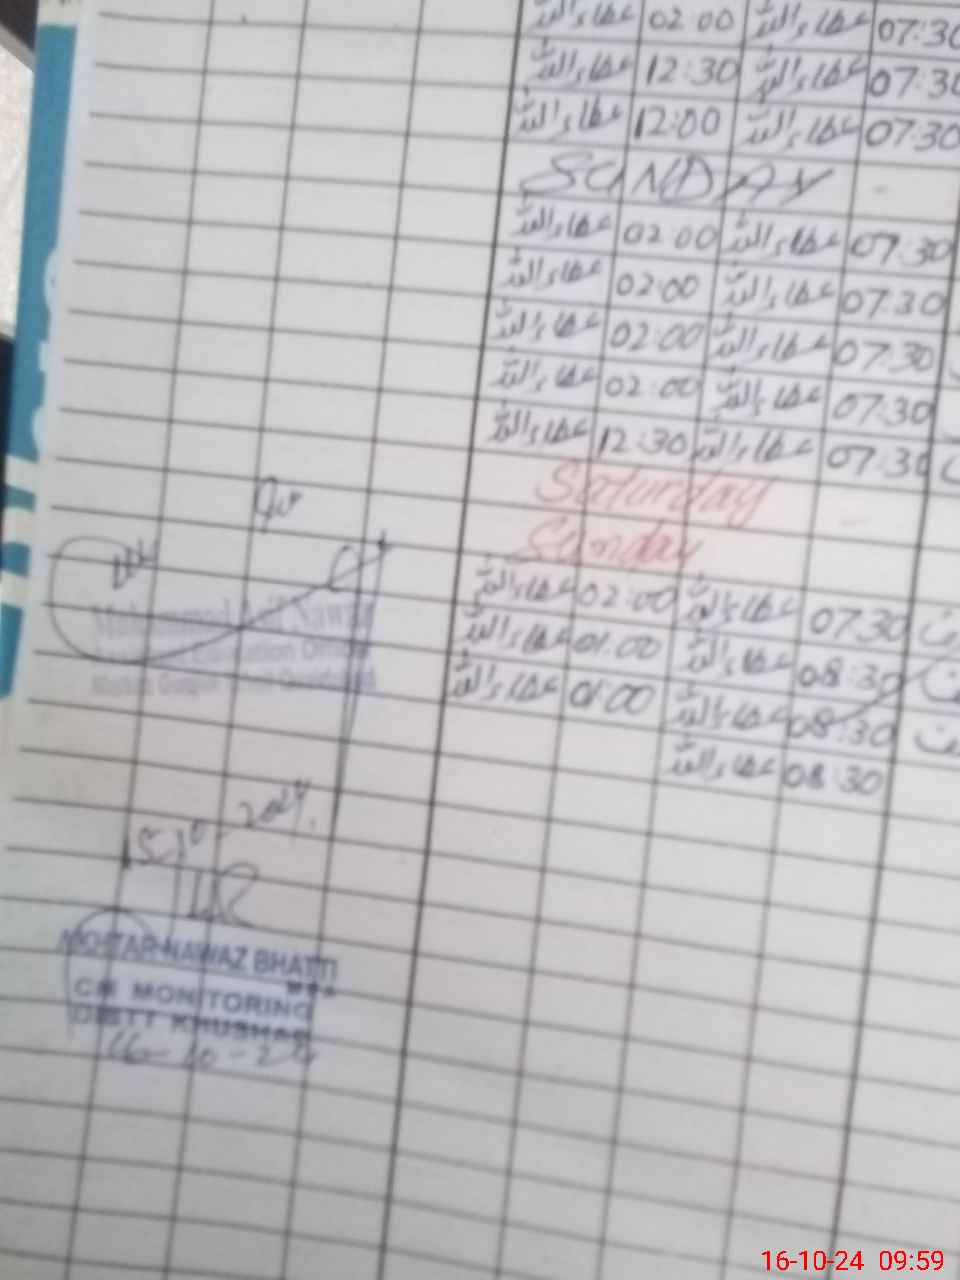 عطاء اللہ 02:00 عطاء اللہ 07:30
عطاء اللہ 12:30 عطاء اللہ 07:30
عطاء اللہ 12:00 عطاء اللہ 07:30
SUNDAY -
عطاء اللہ 02:00 عطاء اللہ 07:30
عطاء اللہ 02:00 عطاء اللہ 07:30
عطاء اللہ 02:00 عطاء اللہ 07:30
عطاء اللہ 02:00 عطاء اللہ 07:30
عطاء اللہ 12:30 عطاء اللہ 07:30
Saturday
Sunday
عطاء اللہ 02:00 عطاء اللہ 07:30
عطاء اللہ 01:00 عطاء اللہ 08:30
عطاء اللہ 01:00 عطاء اللہ 08:30
عطاء اللہ 08:30
Nawaz
Education Officer
NAWAZ BHATTI
CM MONITORING
DISTT KHUSHAB
16-10-24
16-10-24 09:59